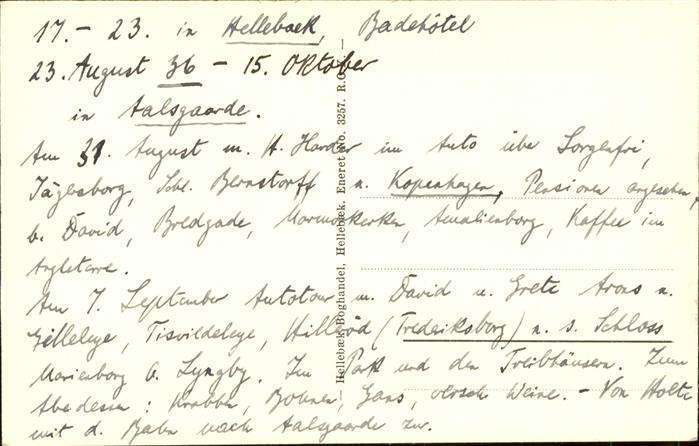 17. – 23. in Hellebaek, Badehôtel
23. August 36 – 15. Oktober
in Aalsgaarde.
Am 31. August m. H. Harder im Auto über Sorgenfri,
Jägersborg, Schl. Bernstorff n. Kopenhagen, Pensionen angesehen,
b. David, Bredgade, Marmorkirken, Amalienborg, Kaffee im
Angleterre.
Am 7. September Autotour m. David u. Grete Arons n.
Gilleleje, Tisvildeleje, Hilleröd (Frederiksborg) n. s. Schloss
Marienborg b. Lyngby. Im Park und den Treibhäusern. Zum
Abendessen: Krabben, Bohnen, Gans, Weine. – Von Holte
mit d. Bahn nach Aalsgaarde zur.
Hellebæk Boghandel, Hellebæk. Eneret No. 3257. R.O.